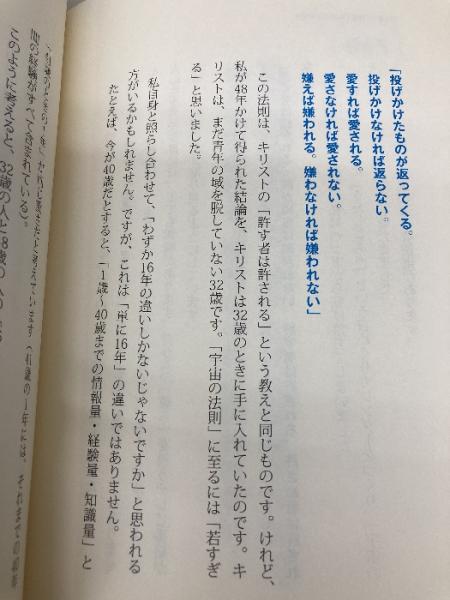 「投げかけたものが返ってくる。
投げかけなければ返らない。
愛すれば愛される。
愛さなければ愛されない。
嫌えば嫌われる。嫌わなければ嫌われない」
この法則は、キリストの「許す者は許される」という教えと同じものです。けれど、
私が48年かけて得られた結論を、キリストは32歳のときに手に入れていたのです。キ
リストは、まだ青年の域を脱していない32歳です。「宇宙の法則」に至るには「若すぎ
る」と思いました。
私自身と照らし合わせて、「わずか16年の違いしかないじゃないですか」と思われる
方がいるかもしれません。ですが、これは「単に16年」の違いではありません。
たとえば、今が40歳だとすると、「1歳〜40歳までの情報量・経験量・知識量」と
間の経験がすべて含まれている）。
このように考えると、32歳の人と48歳の人の